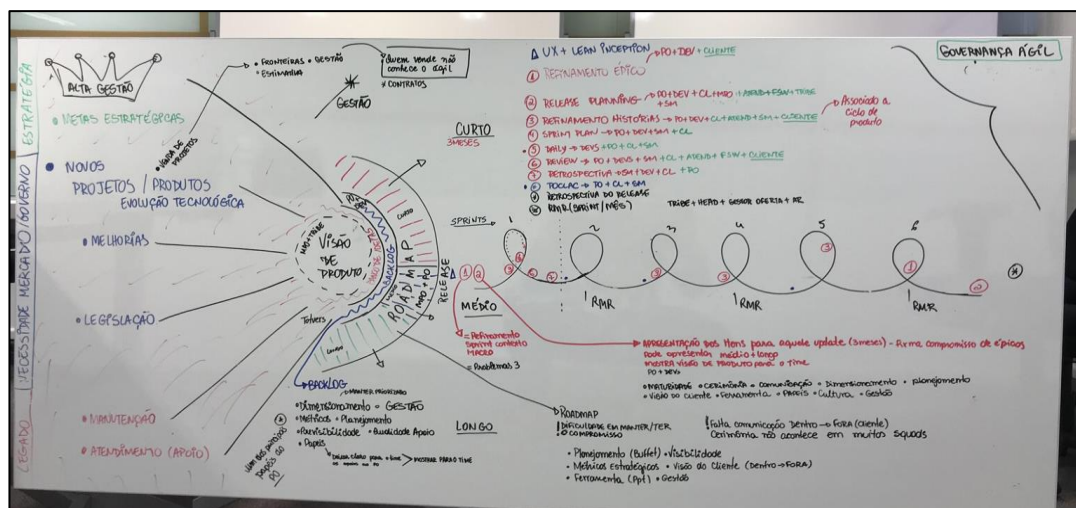 GOVERNANÇA ÁGIL
ESTRATÉGIA
NECESSIDADE MERCADO/GOVERNO
LEGADO
ALTA GESTÃO
• METAS ESTRATÉGICAS
• NOVOS
PROJETOS / PRODUTOS
EVOLUÇÃO TECNOLÓGICA
• MELHORIAS
• LEGISLAÇÃO
• MANUTENÇÃO
• ATENDIMENTO (APOIO)
• FRONTEIRAS • GESTÃO
• ESTIMATIVA
• VENDA DE PROJETOS
Quem vende não
conhece o ágil
* CONTRATOS
GESTÃO
CURTO
3 MESES
VISÃO
DE
PRODUTO
BACKLOG
ROADMAP
MPO + PO
RELEASE
CURTO
LONGO
△ UX + LEAN INCEPTION → PO + DEV + CLIENTE
① REFINAMENTO ÉPICO
② RELEASE PLANNING → PO + DEV + CL + MPO + ATEND + FSW + TRIBE
+ SM
③ REFINAMENTO HISTÓRIAS → PO + DEV + CL + ATEND + SM + CLIENTE
→ Associado a
ciclo de
produto
④ SPRINT PLAN → PO + DEV + SM + CL
⑤ DAILY → DEVS + PO + CL + SM
⑥ REVIEW → PO + DEVS + SM + CL + ATEND + FSW + CLIENTE
⑦ RETROSPECTIVA → SM + DEV + CL + PO
TOCLAC → PO + CL + SM
RETROSPECTIVA DO RELEASE
RMR (SPRINT/MÊS) TRIBE + HEAD + GESTOR OFERTA + AR
SPRINTS 1 2 3 4 5 6
△ ① ②
MÉDIO
RMR RMR RMR
= Refinamento
contexto
MACRO
= Problemas 3
APRESENTAÇÃO DOS itens para aquele update (3 meses) - Firma compromisso de épicos
Pode apresentar médio + longo
MOSTRA VISÃO DE PRODUTO para o Time
PO + DEVS
• MATURIDADE • CERIMÔNIA • Comunicação • Dimensionamento • Planejamento
• VISÃO DO CLIENTE • Ferramenta • PAPÉIS • Cultura • Gestão
BACKLOG
→ MANTER PRIORIZADO
• Dimensionamento • GESTÃO
• Métricas • Planejamento
• Previsibilidade • Qualidade Apoio
• Papéis
→ MOSTRAR PARA O TIME
LONGO
ROADMAP
! DIFICULDADE EM MANTER/TER
! O COMPROMISSO
! Falta comunicação Dentro → FORA (cliente)
Cerimônia não acontece em muitos squads
• Planejamento (Buffer) • Visibilidade
• Métricas Estratégicas • Visão do Cliente (Dentro → FORA)
• Ferramenta (Ppt) • Gestão